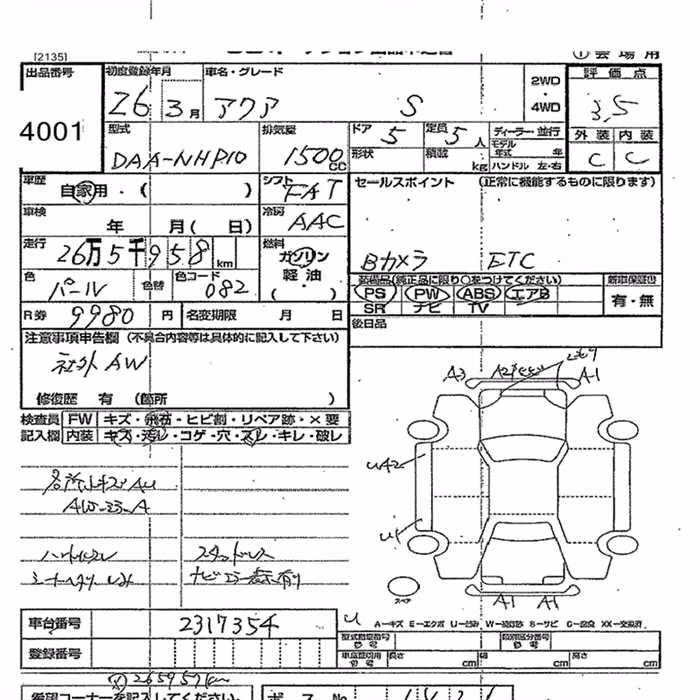 [2135]
① 会場用
出品番号 4001
初度登録年月 26年 3月
車名・グレード アクア S
2WD・4WD
評価点 3.5
外装 C 内装 C
型式 DAA-NHP10
排気量 1500cc
ドア 5 定員 5人
形状 積載 kg
ディーラー・並行
モデル年式 年
ハンドル 左・右
車歴 自家用・( )
シフト FAT
セールスポイント (正常に機能するものに限ります)
車検 年 月(日)
冷房 AAC
走行 26万5千958km
燃料 ガソリン 軽油 ( ・ )
Bカメラ ETC
色 パール 色替 色コード 082
装備品(純正品に限り○をつけてください)
PS PW ABS エアB
SR ナビ TV
新車保証書 有・無
R券 9980円 名変期限 月 日
後日品
注意事項申告欄 (不具合内容等は具体的に記入して下さい)
社外AW
修復歴 有 (箇所 )
検査員 FW キズ・飛石・ヒビ割・リペア跡・×要
記入欄 内装 キズ・汚レ・コゲ・穴・スレ・キレ・破レ
A3 A1
U42
U1
各所小キズAU
AW-23-A
スペア
A1 A1
U
A-キズ E-エクボ U-凹み W-波打跡 S-サビ C-腐食 XX-交換済
車台番号 2317354
型式指定番号 類別区分番号
登録番号
長さ cm 幅 cm 高さ cm
265957km
希望コーナーを記入してください